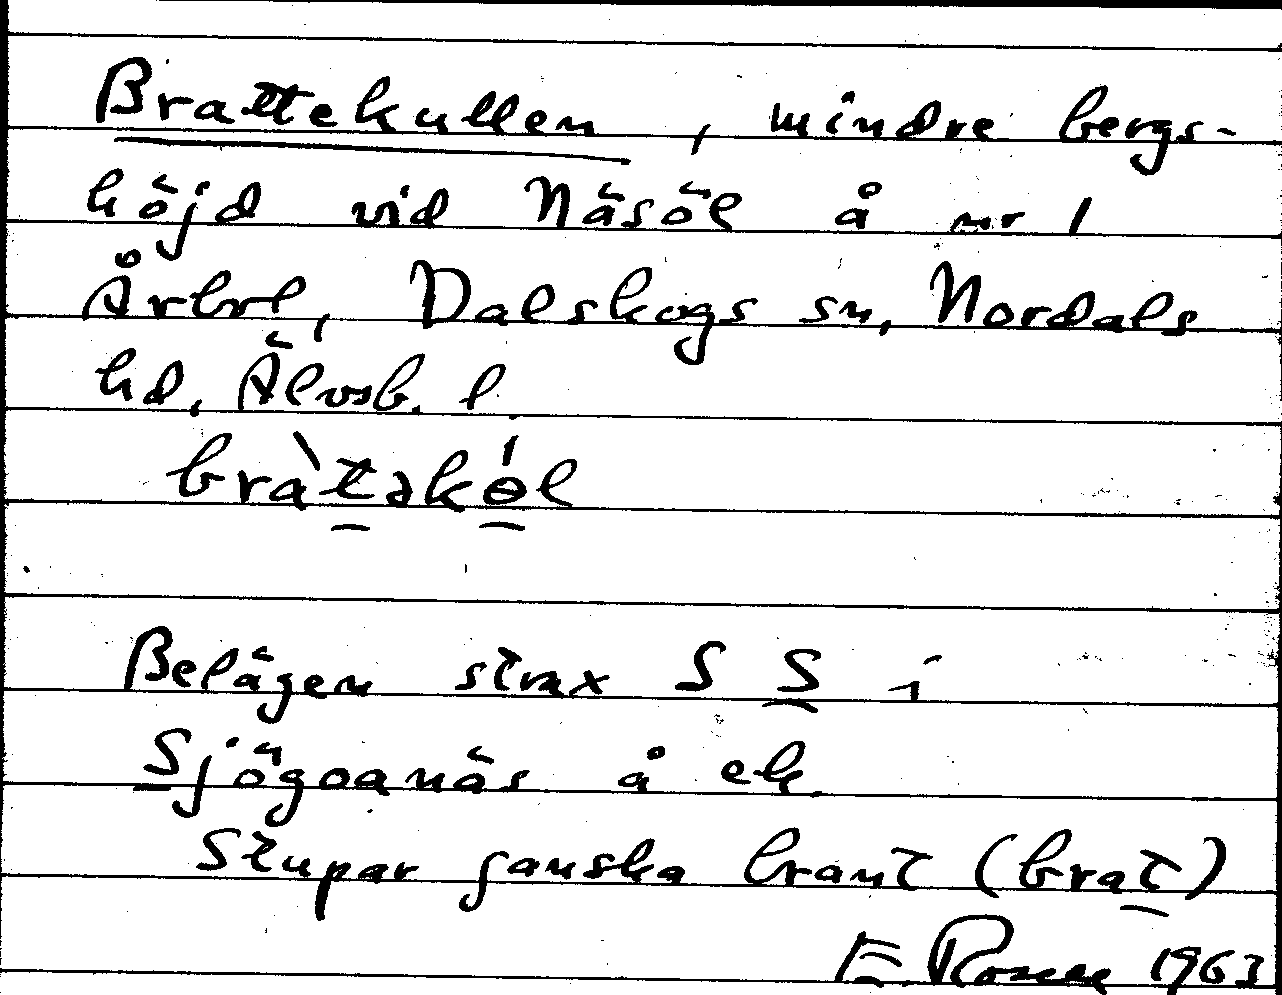 Brattekullen, mindre bergs-
höjd vid Näsöl å nr 1
Årbol, Dalskogs sn, Nordals
hd, Älvsb. l.
bràt̲əkɵ̲́l
Belägen strax S S i
Sjögoanäs å ek.
Stupar ganska brant (brat̲)
E. Rosell 1963